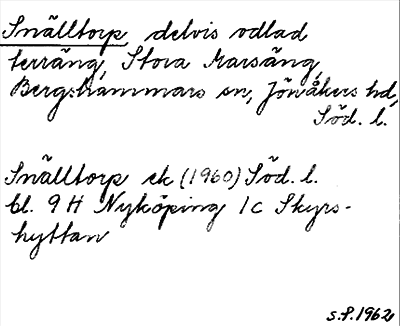 Snälltorp delvis odlad
terräng, Stora Marsäng,
Bergshammars sn, Jönåkers hd,
Söd. l.
Snälltorp ek (1960) Söd. l.
bl. 9 H Nyköping 1c Skyrs-
hyttan
s.f. 1962